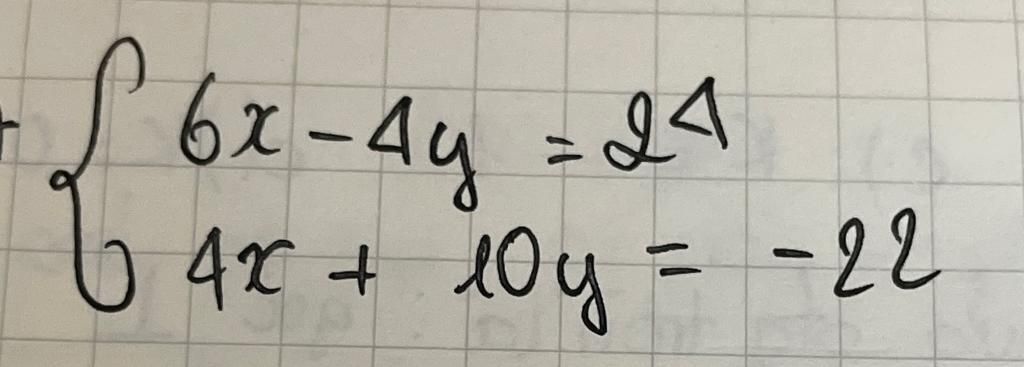 6x - 4y = 24
4x + 10y = -22